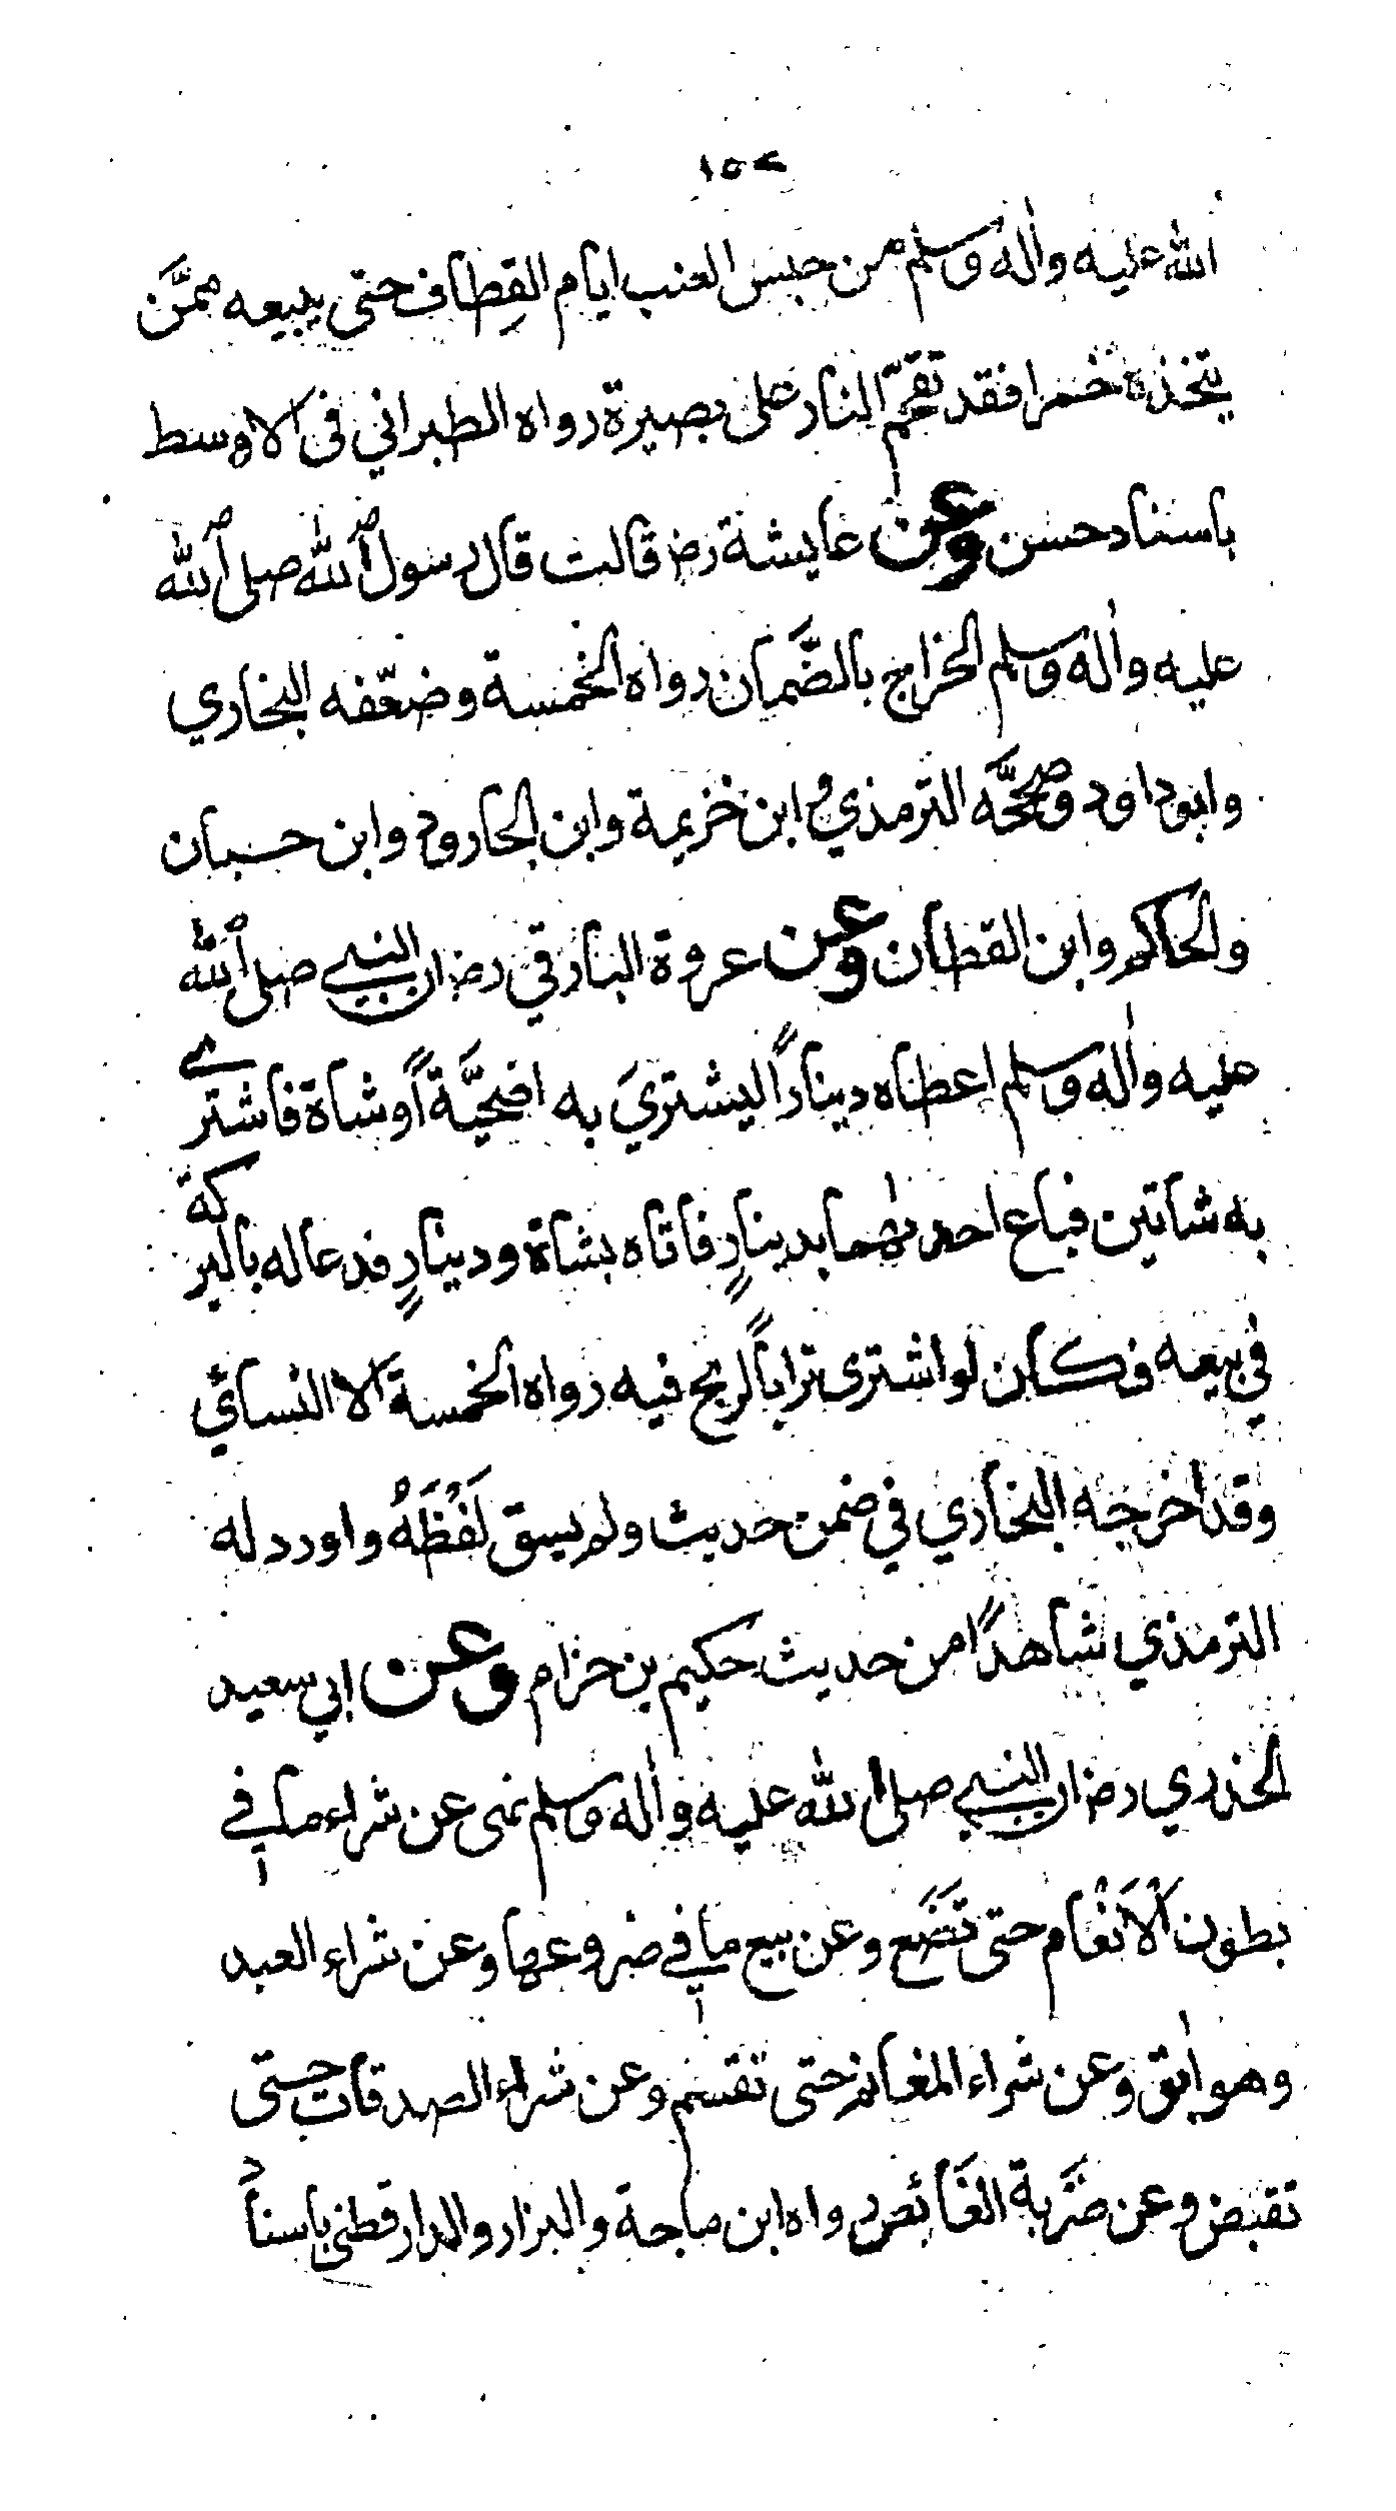 ١٥٢
الله عليه واله وسلم من حبس العنب ايام القِطاف حتى يبيعه ممَّن
يتخذه خمرا فقد تقحّم النار على بصيرة رواه الطبراني في الاوسط
باسناد حسن وعن عايشة رض قالت قال رسول الله صلى الله
عليه واله وسلم الخراج بالضَّمان رواه الخمسة وضعّفه البخاري
وابوداود وصحَّحه الترمذي و ابن خزيمة وابن الجارود وابن حبان
والحاكم وابن القطان وعن عروة البارقي رض ان النبي صلى الله
عليه واله وسلم اعطاه ديناراً ليشتريَ به اضحيَّةً او شاة فاشترے
به شاتين فباع احدٰهما بدينارٍ فاتاه بشاة ودينارٍ فدعا له بالبركة
في بيعه فكان لو اشترى تراباً لربح فيه رواه الخمسة الا النسائي
وقد اخرجه البخاري في ضمن حديث ولم يسق لَفْظَهُ واورد له
الترمذي شاهدًا من حديث حكيم بن حزام وعن ابي سعيد
الخدري رض ان النبي صلى الله عليه واله وسلم نهى عن شراء ما في
بطون الْاَنْعَام حتى تَضَع وعن بيع ما في ضروعها وعن شراء العبد
وهو ابق وعن شراء المغانم حتى تقسم وعن شراء الصدقات حتى
تقبض وعن ضَرْبة الغَائص رواه ابن ماجة والبزار والدارقطني باسناد